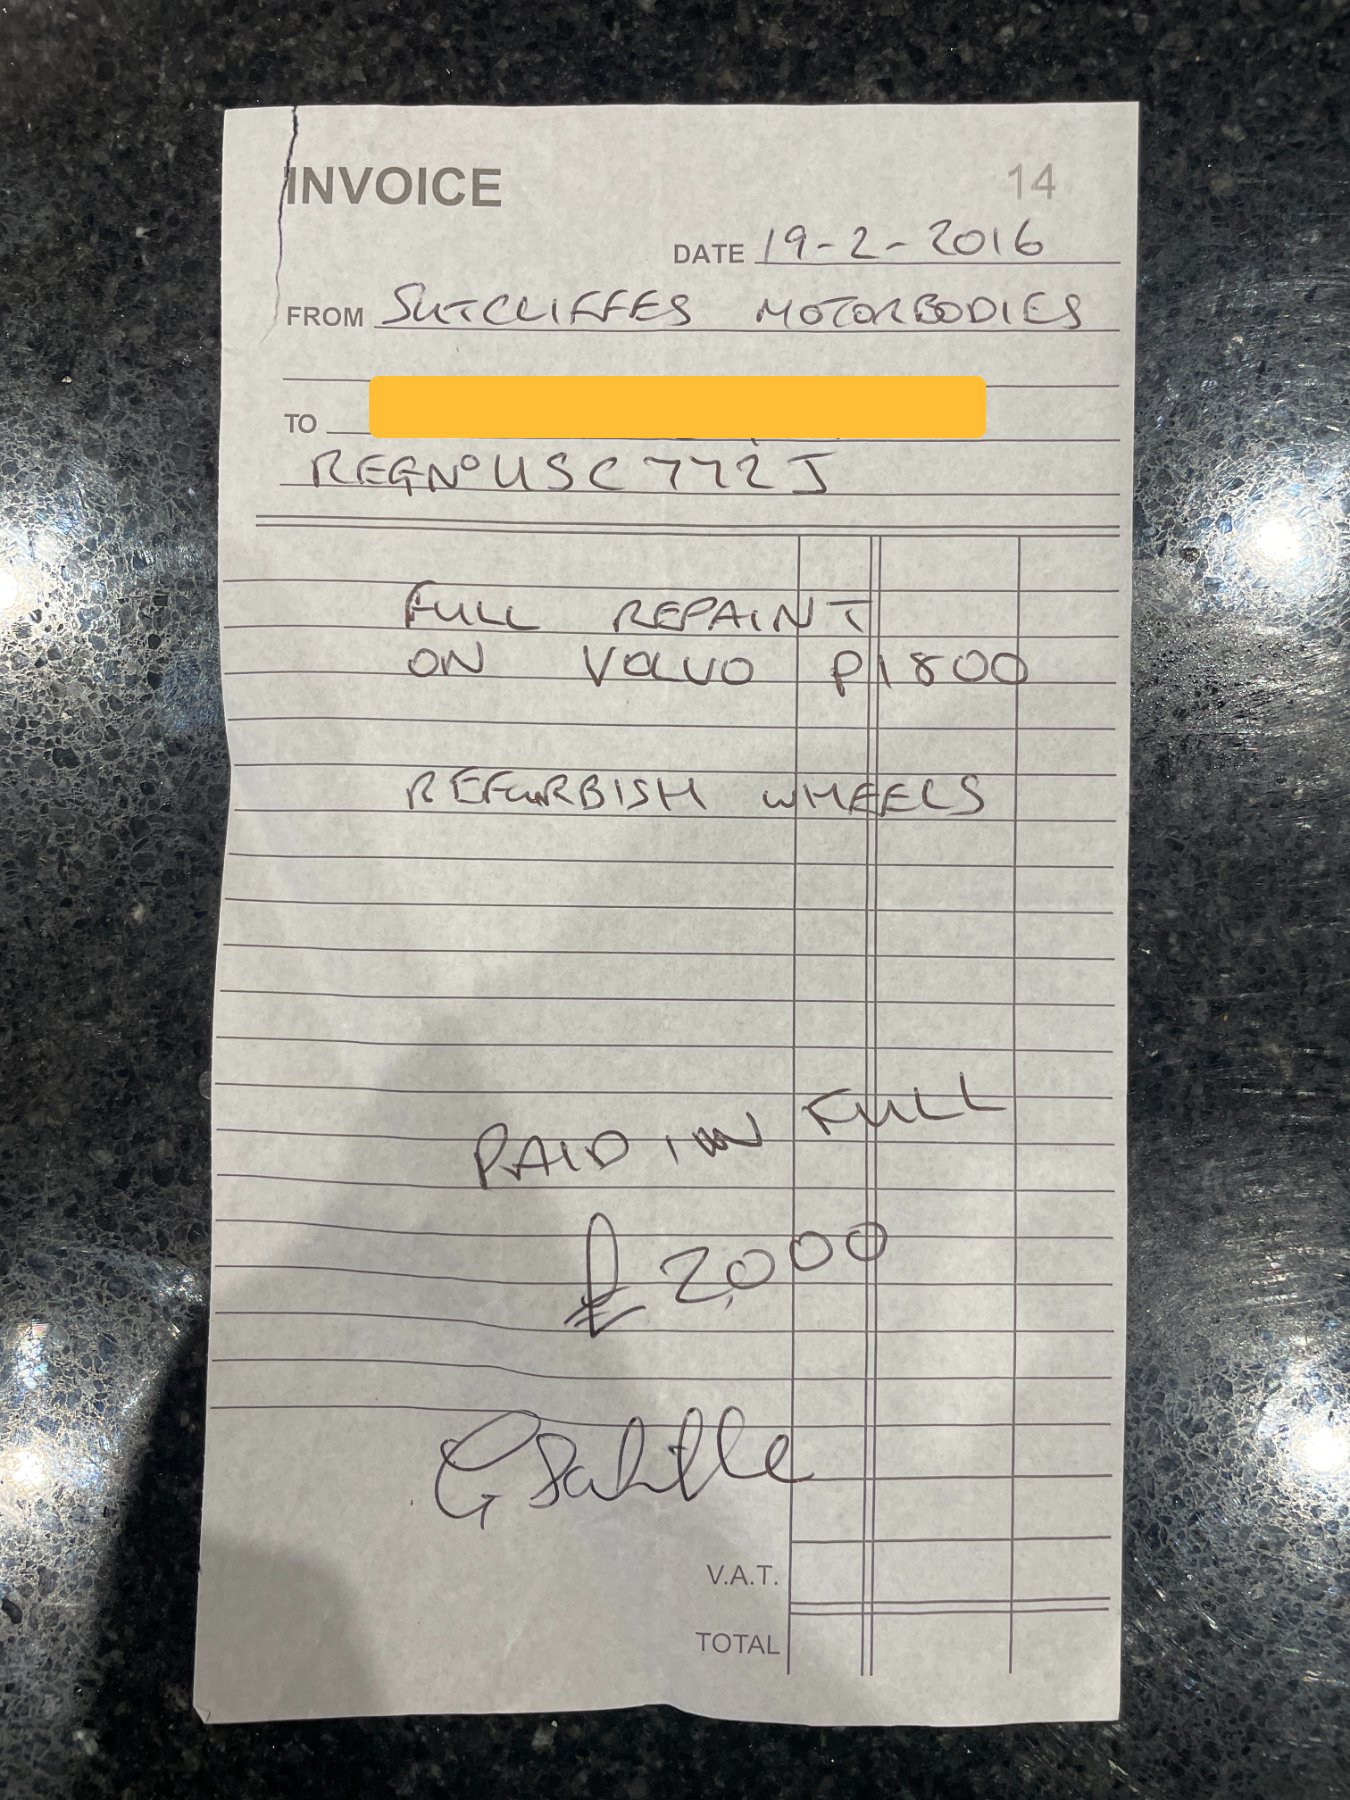 INVOICE
14
DATE 19-2-2016
FROM SUTCLIFFES MOTORBODIES
TO
REG Nº USC 772J
FULL REPAINT
ON VOLVO P1800
REFURBISH WHEELS
PAID IN FULL
£2,000
V.A.T.
TOTAL